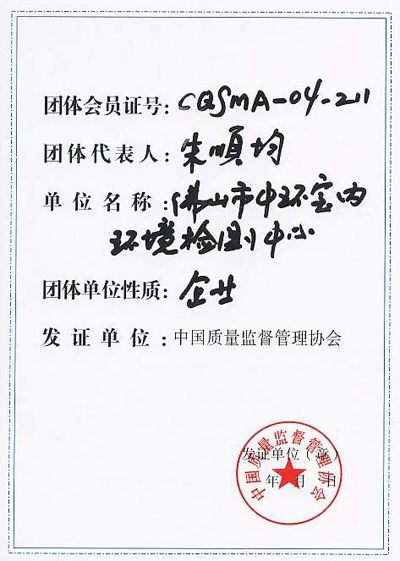 团体会员证号：CQSMA-04-211
团体代表人：朱順均
单位名称：佛山市中环室内
环境检测中心
团体单位性质：企业
发证单位：中国质量监督管理协会
发证单位（章）
年 月 日
中国质量监督管理协会